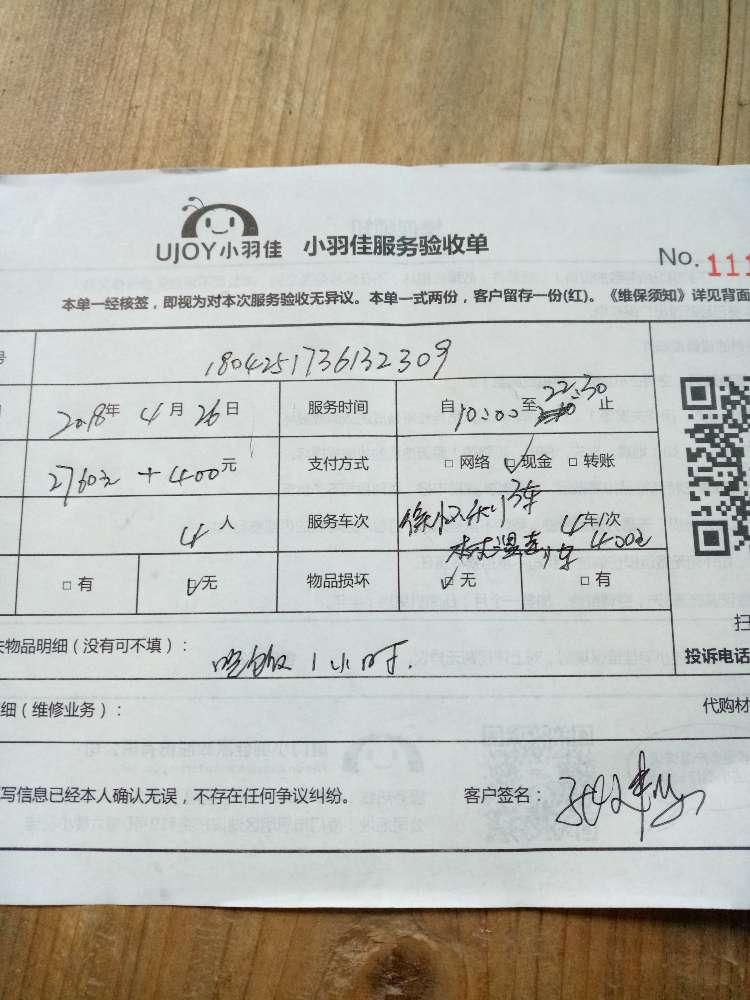 UJOY小羽佳 小羽佳服务验收单
No. 111
本单一经核签，即视为对本次服务验收无异议。本单一式两份，客户留存一份(红)。《维保须知》详见背面
号 1804251736132309
2018年 4月 26日 服务时间 自10:00至22:30止
2760元+400元 支付方式 □ 网络 □ 现金 □ 转账
4人 服务车次 4车/次
400元
□ 有 □ 无 物品损坏 □ 无 □ 有
扫
失物品明细（没有可不填）： 吃饭1小时. 投诉电话
细（维修业务）： 代购材
写信息已经本人确认无误，不存在任何争议纠纷。 客户签名：